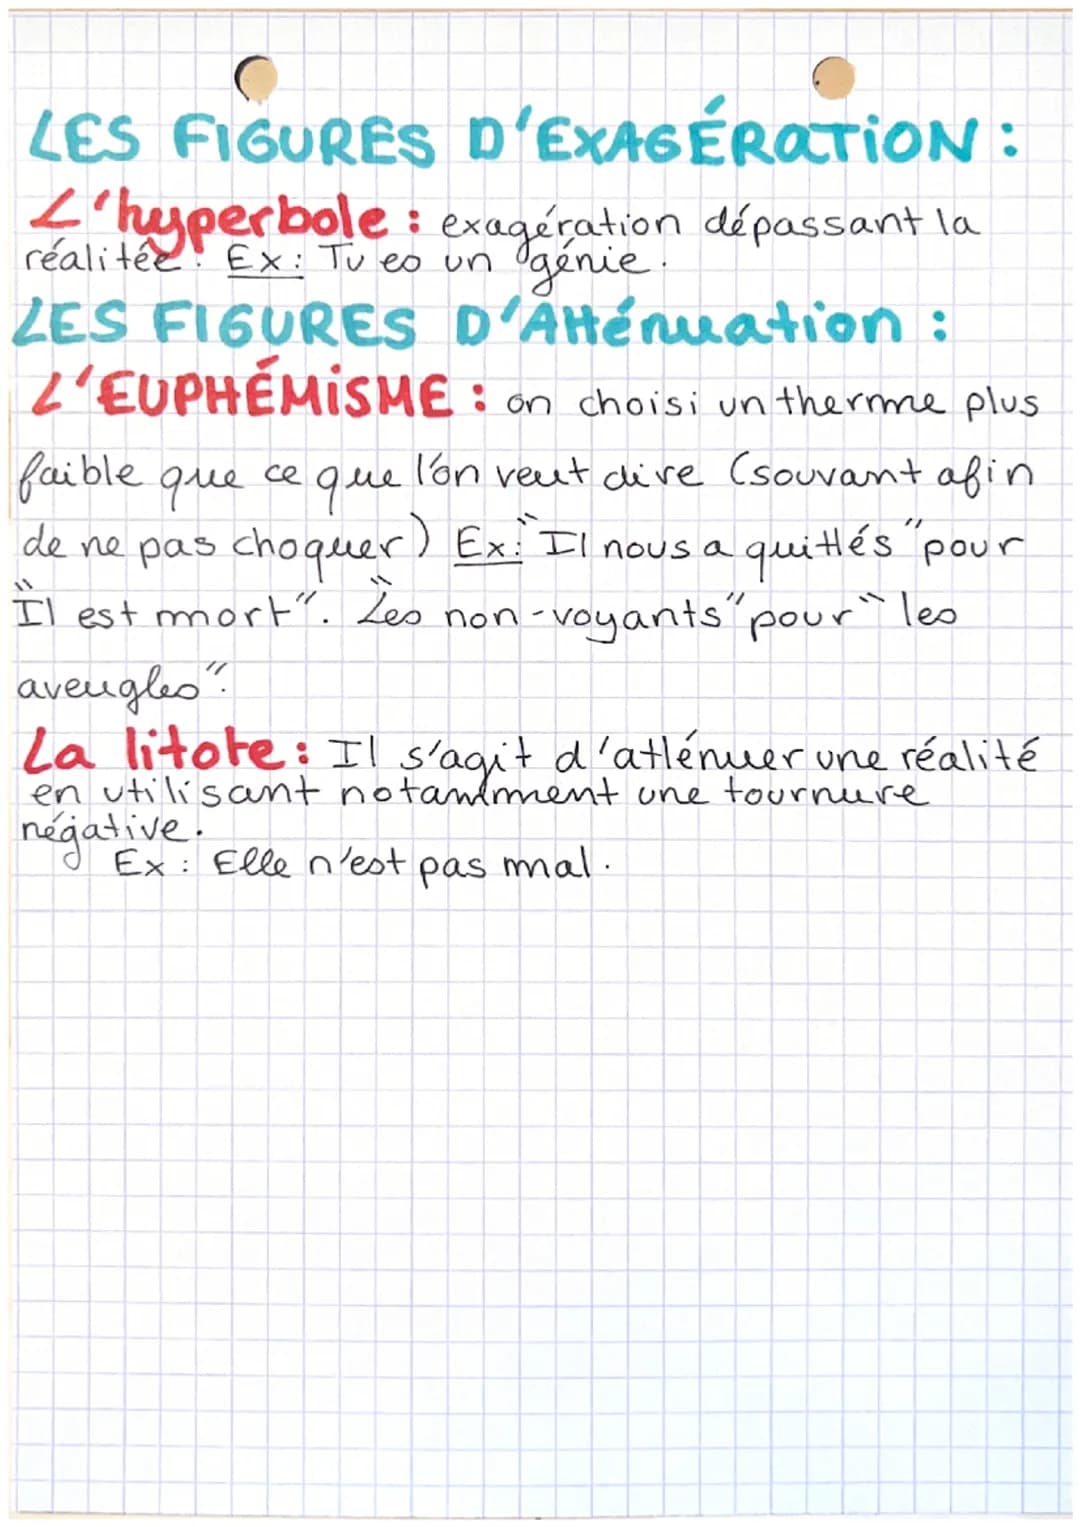 LES FIGURES D'EXAGÉRATION :
L'hyperbole : exagération dépassant la
réalitée. Ex : Tu es un génie.
LES FIGURES D'Atténuation :
L'EUPHÉMISME : on choisi un therme plus
faible que ce que l'on veut dire (souvant afin
de ne pas choquer) Ex : "Il nous a quittés" pour
"Il est mort". "Les non-voyants" pour "les
aveugles".
La litote : Il s'agit d'atténuer une réalité
en utilisant notamment une tournure
négative.
Ex : Elle n'est pas mal.